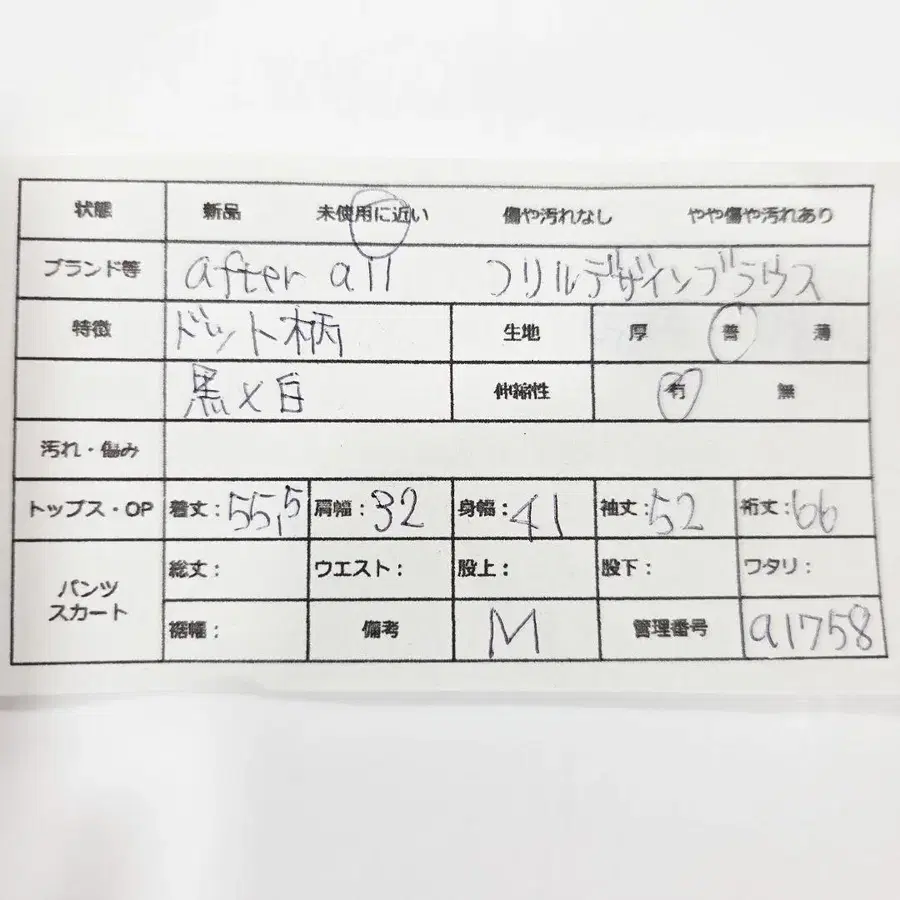 状態 新品 未使用に近い 傷や汚れなし やや傷や汚れあり
ブランド等 after all フリルデザインブラウス
特徴 ドット柄 生地 厚 普 薄
黒×白 伸縮性 有 無
汚れ・傷み
トップス・OP 着丈:55,5 肩幅:32 身幅:41 袖丈:52 裄丈:66
パンツ スカート 総丈: ウエスト: 股上: 股下: ワタリ:
裾幅: 備考 M 管理番号 a1758